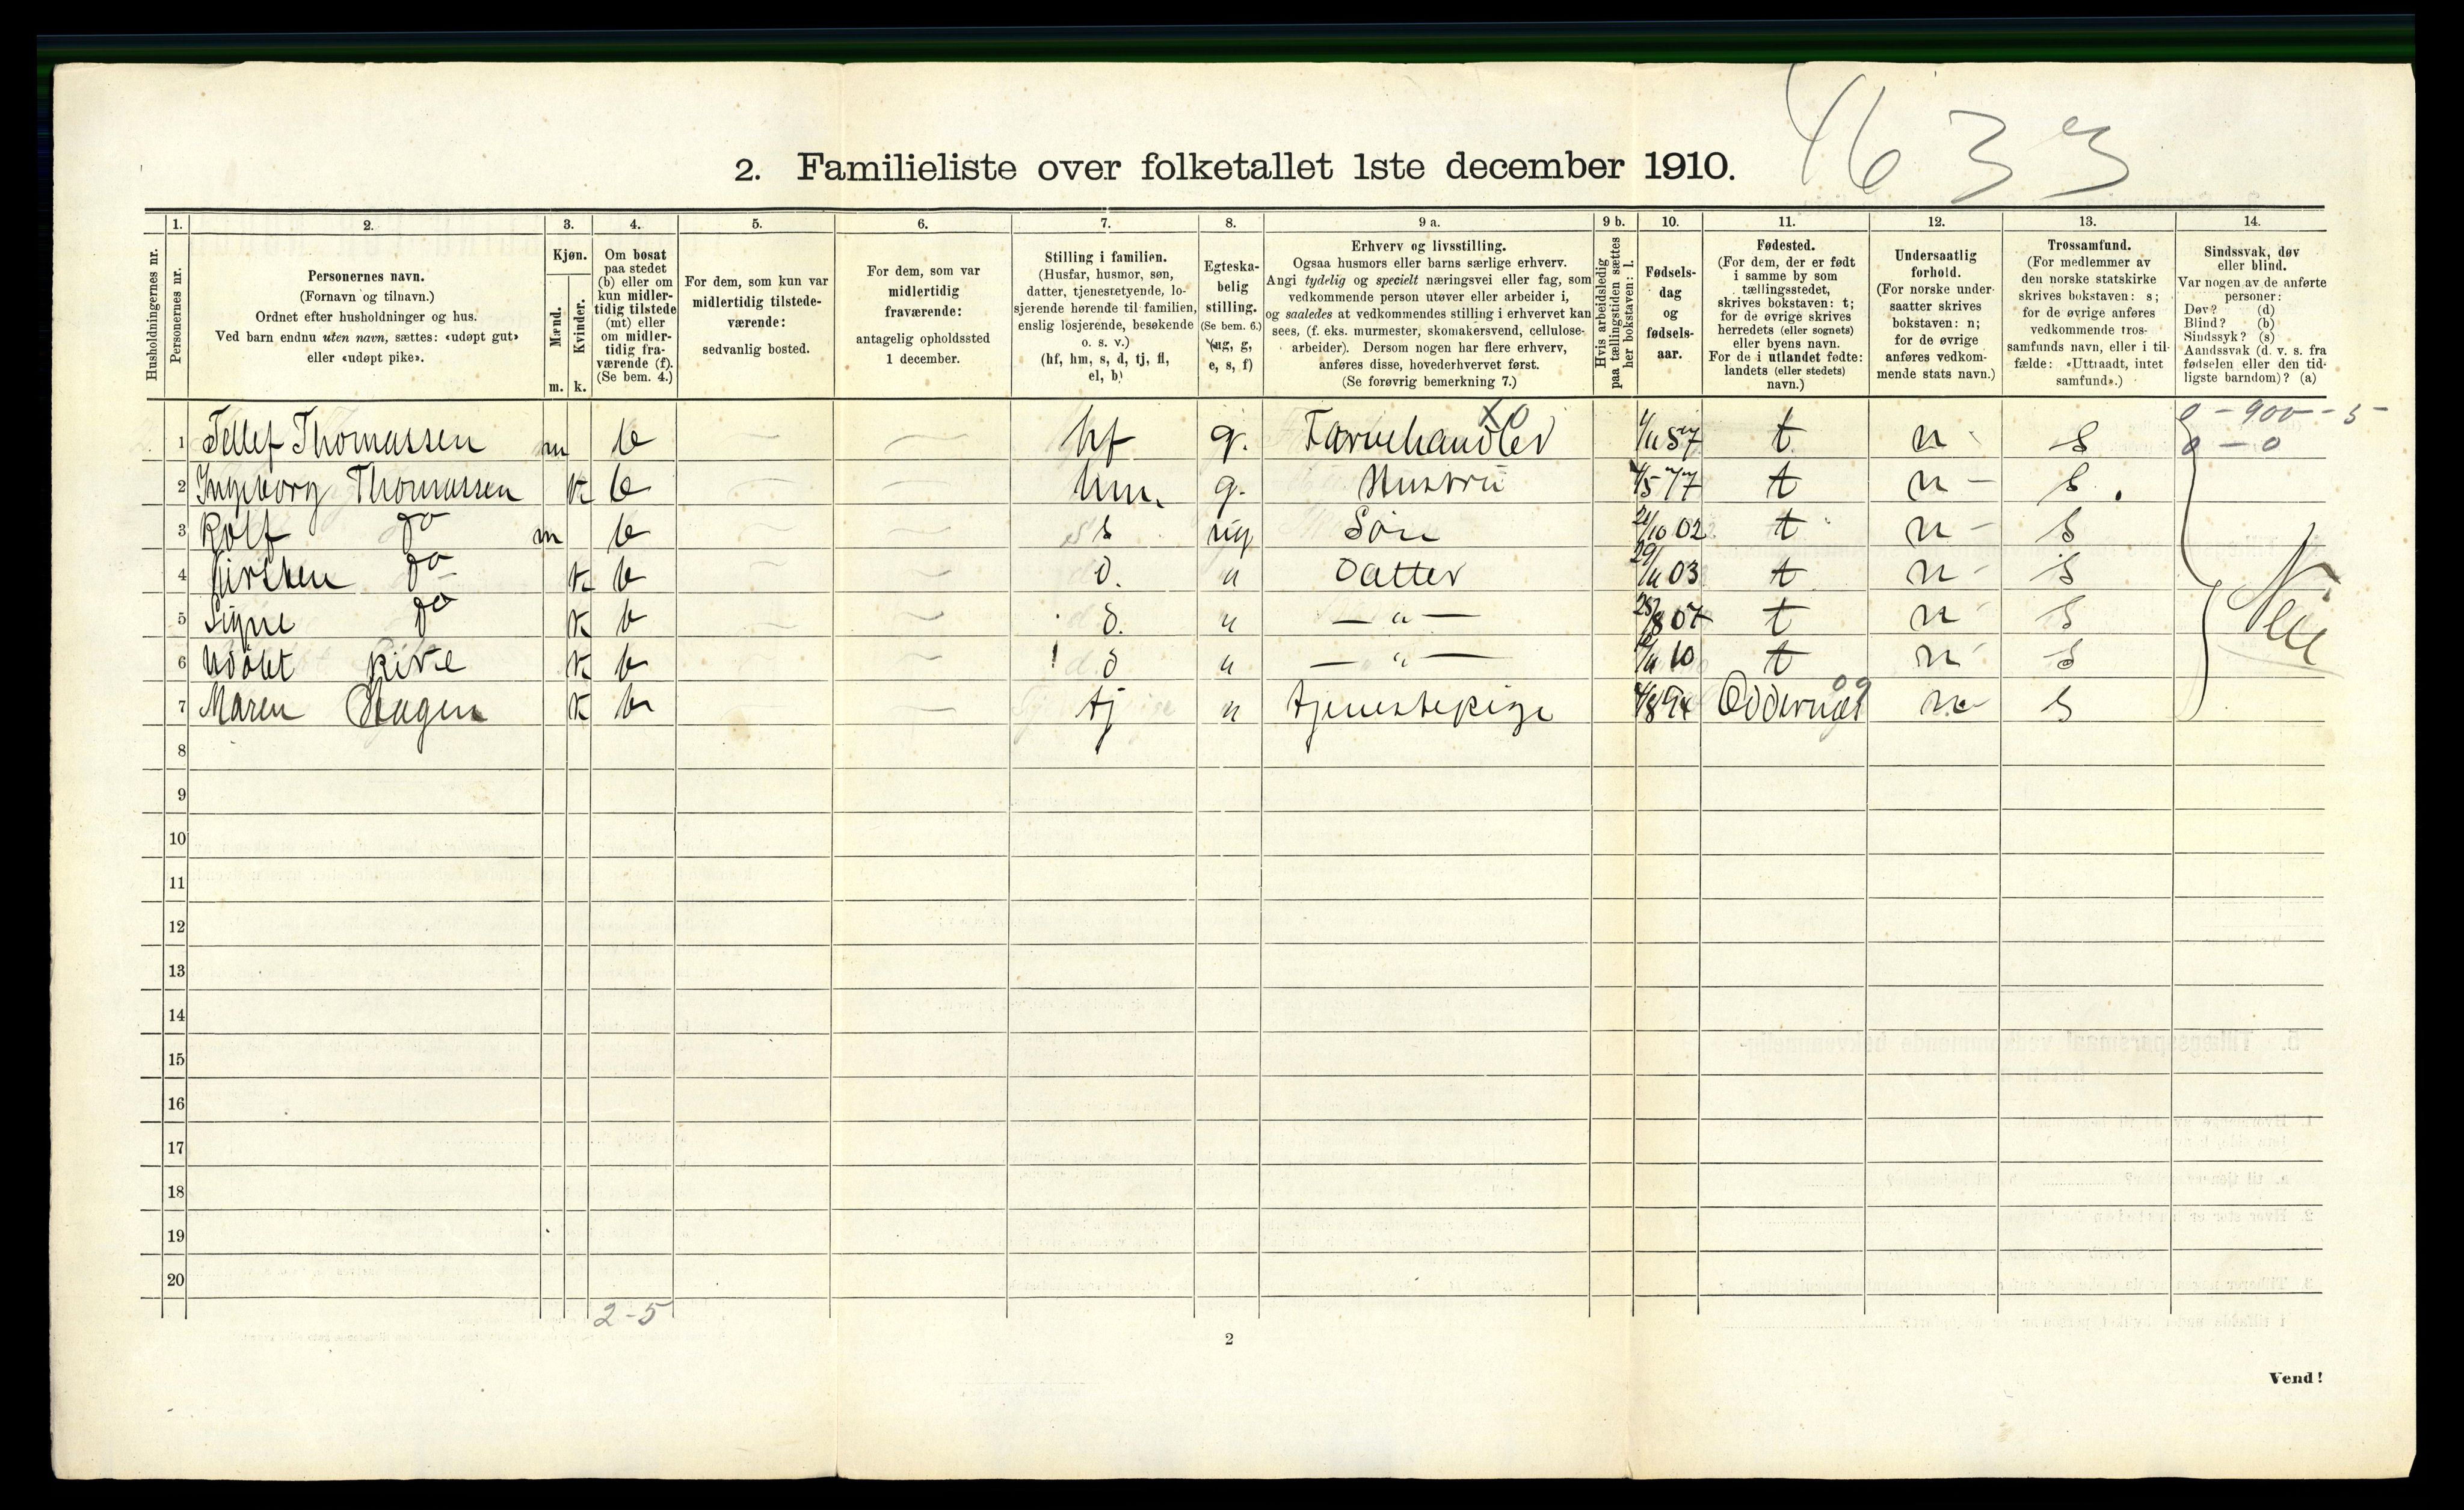 4633
2. Familieliste over folketallet 1ste december 1910.
1. 2. 3. 4. 5. 6. 7. 8. 9 a. 9 b. 10. 11. 12. 13. 14.
Husholdningernes nr.
Personernes nr.
Personernes navn.
(Fornavn og tilnavn.)
Ordnet efter husholdninger og hus.
Ved barn endnu uten navn, sættes: «udøpt gut»
eller «udøpt pike».
Kjøn.
Mænd.
m.
Kvinder.
k.
Om bosat
paa stedet
(b) eller om
kun midler-
tidig tilstede
(mt) eller
om midler-
tidig fra-
værende (f).
(Se bem. 4.)
For dem, som kun var
midlertidig tilstede-
værende:
sedvanlig bosted.
For dem, som var
midlertidig
fraværende:
antagelig opholdssted
1 december.
Stilling i familien.
(Husfar, husmor, søn,
datter, tjenestetyende, lo-
sjerende hørende til familien,
enslig losjerende, besøkende
o. s. v.)
(hf, hm, s, d, tj, fl,
el, b)
Egteska-
belig
stilling.
(Se bem. 6.)
(ug, g,
e, s, f)
Erhverv og livsstilling.
Ogsaa husmors eller barns særlige erhverv.
Angi tydelig og specielt næringsvei eller fag, som
vedkommende person utøver eller arbeider i,
og saaledes at vedkommendes stilling i erhvervet kan
sees, (f. eks. murmester, skomakersvend, cellulose-
arbeider). Dersom nogen har flere erhverv,
anføres disse, hovederhvervet først.
(Se forøvrig bemerkning 7.)
Hvis arbeidsledig
paa tællingstiden sættes
her bokstaven: l.
Fødsels-
dag
og
fødsels-
aar.
Fødested.
(For dem, der er født
i samme by som
tællingsstedet,
skrives bokstaven: t;
for de øvrige skrives
herredets (eller sognets)
eller byens navn.
For de i utlandet fødte:
landets (eller stedets)
navn.)
Undersaatlig
forhold.
(For norske under-
saatter skrives
bokstaven: n;
for de øvrige
anføres vedkom-
mende stats navn.)
Trossamfund.
(For medlemmer av
den norske statskirke
skrives bokstaven: s;
for de øvrige anføres
vedkommende tros-
samfunds navn, eller i til-
fælde: «Uttraadt, intet
samfund».)
Sindssvak, døv
eller blind.
Var nogen av de anførte
personer:
Døv? (d)
Blind? (b)
Sindssyk? (s)
Aandssvak (d. v. s. fra
fødselen eller den tid-
ligste barndom)? (a)
0 - 900 - 5
1 Tellef Thomassen m b hf g. Farvehandler 57 t n s 0 - 0
2 Ingeborg Thomassen k b hm. g. Hustru 4/5 77 t n s.
3 Rolf do m b s ug Søn 21/10 02 t n s
4 Kirsten do k b d. u Datter 29/11 03 t n s
5 Signe do k b d. u — " — 07 t n s
6 Udøbt pike k b d u — " — 10 t n s
7 Maren k b tj u tjenestepige 4/8 94 Oddernæs n s
Nei
8
9
10
11
12
13
14
15
16
17
18
19
20
2-5
2
Vend!